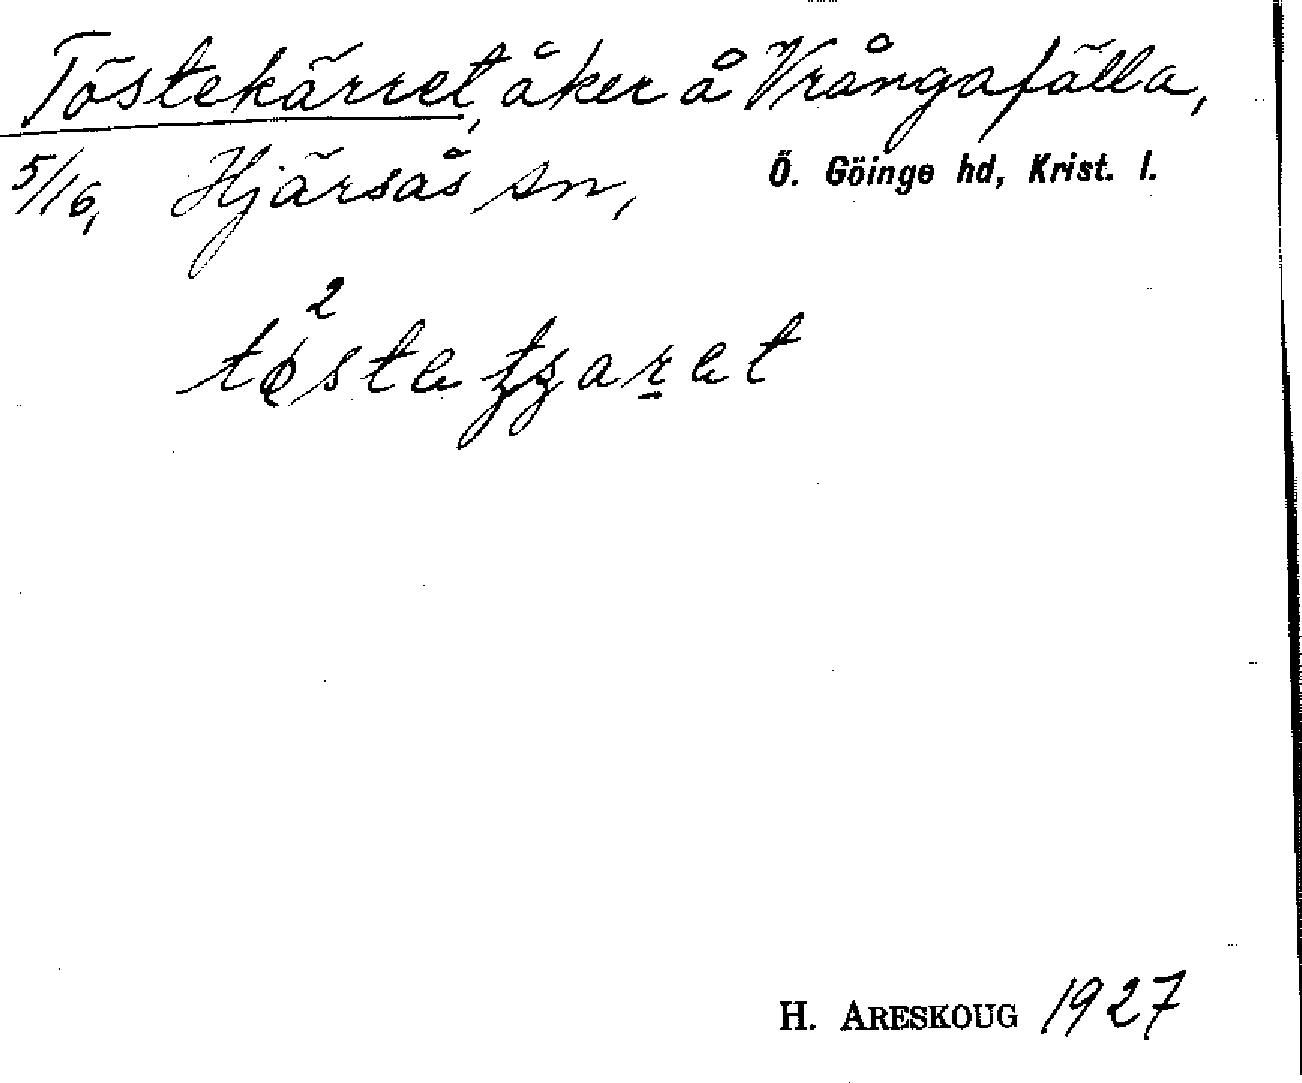 Töstekärret, åker å Vrångafälla,
5/16, Hjärsås sn, Ö. Göinge hd, Krist. l.
H. ARESKOUG 1927